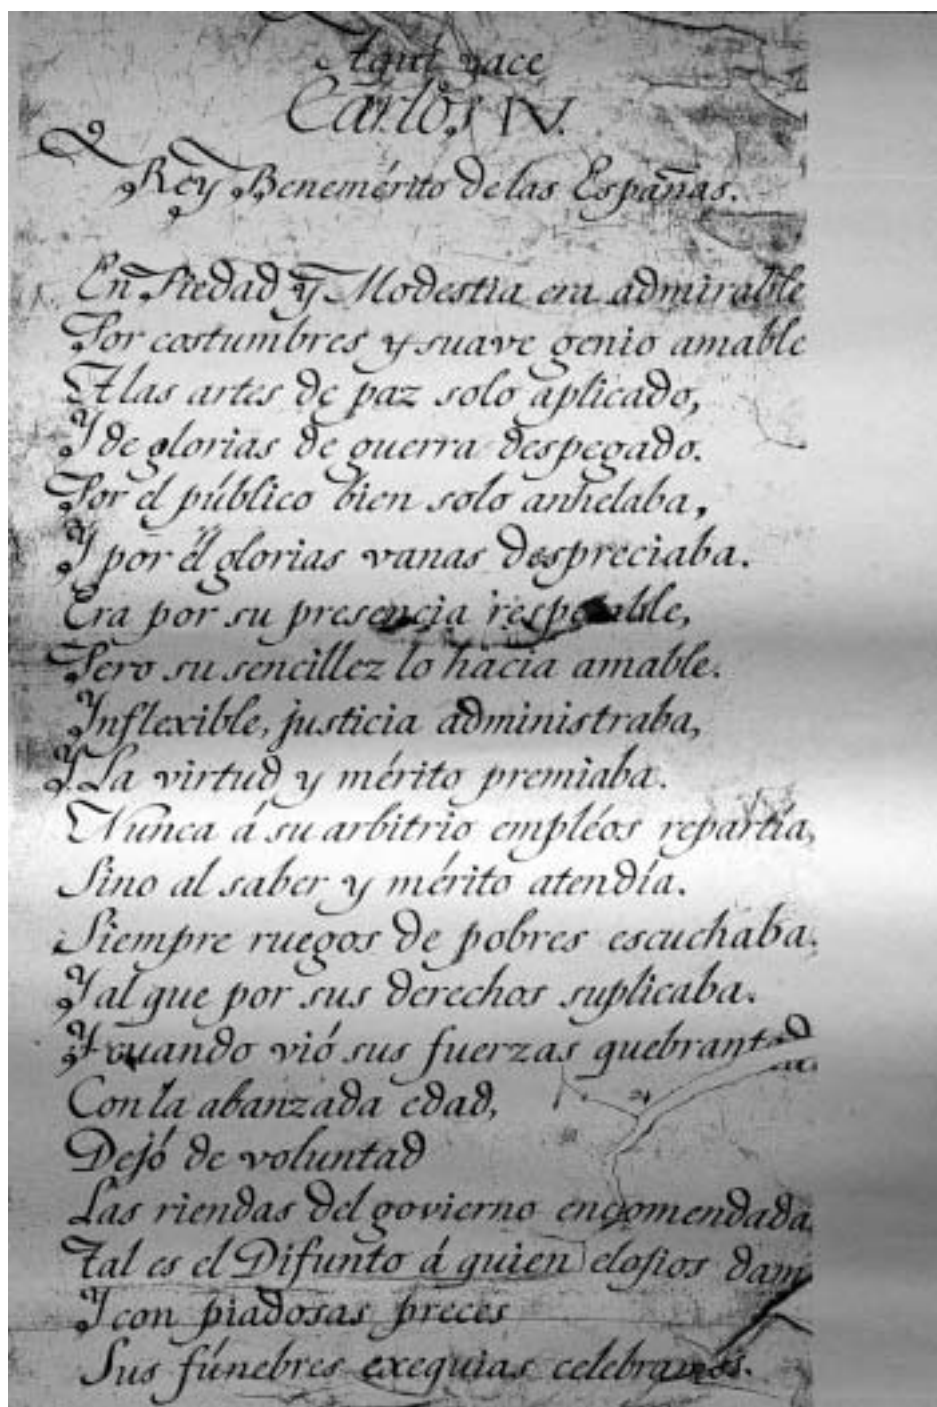 Aquí yace
Carlos IV.
Rey Benemérito de las Españas.
En Piedad y Modestia era admirable
Por costumbres y suave genio amable
A las artes de paz solo aplicado,
Y de glorias de guerra despegado.
Por el público bien solo anhelaba,
Y por él glorias vanas despreciaba.
Era por su presencia respetable,
Pero su sencillez lo hacia amable.
Inflexible, justicia administraba,
Y La virtud y mérito premiaba.
Nunca á su arbitrio empléos repartía,
Sino al saber y mérito atendía.
Siempre ruegos de pobres escuchaba,
Y al que por sus derechos suplicaba.
Y cuando vió sus fuerzas quebrantadas
Con la abanzada edad,
Dejó de voluntad
Las riendas del govierno encomendada
Tal es el Difunto á quien elogios dam
Y con piadosas preces
Sus fúnebres exequias celebramos.